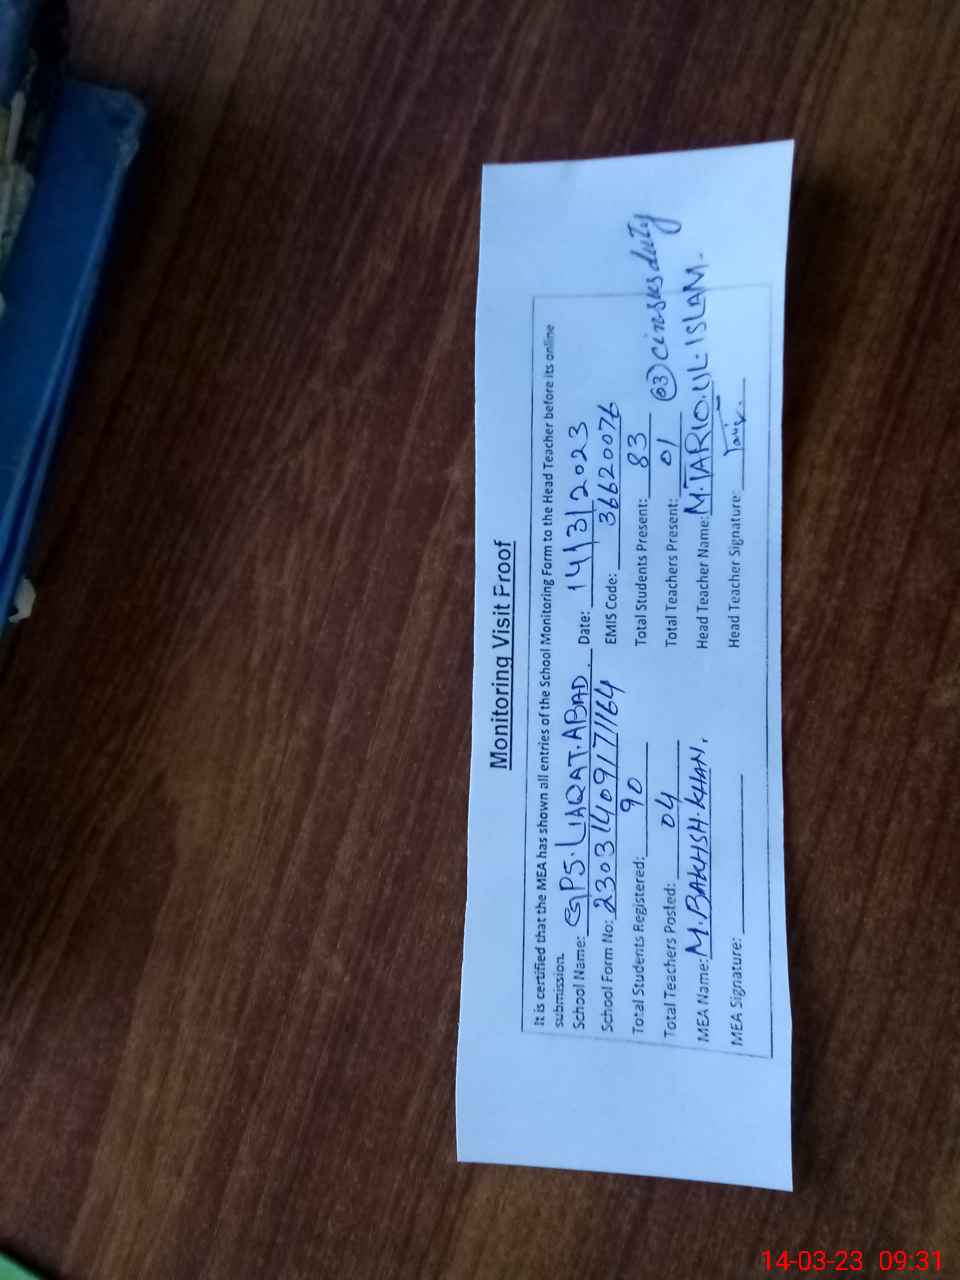 Monitoring Visit Proof
It is certified that the MEA has shown all entries of the School Monitoring Form to the Head Teacher before its online
submission.
School Name: GPS. LIAQAT. ABAD. Date: 14/3/2023
School Form No: 23031409171164 EMIS Code: 36620076
Total Students Registered: 90 Total Students Present: 83
Total Teachers Posted: 04 Total Teachers Present: 01 (03) cinsus duty
MEA Name: M. BAKHSH. KHAN. Head Teacher Name: M. TARIQ. UL. ISLAM.
MEA Signature: Head Teacher Signature: Tariq.
14-03-23 09:31